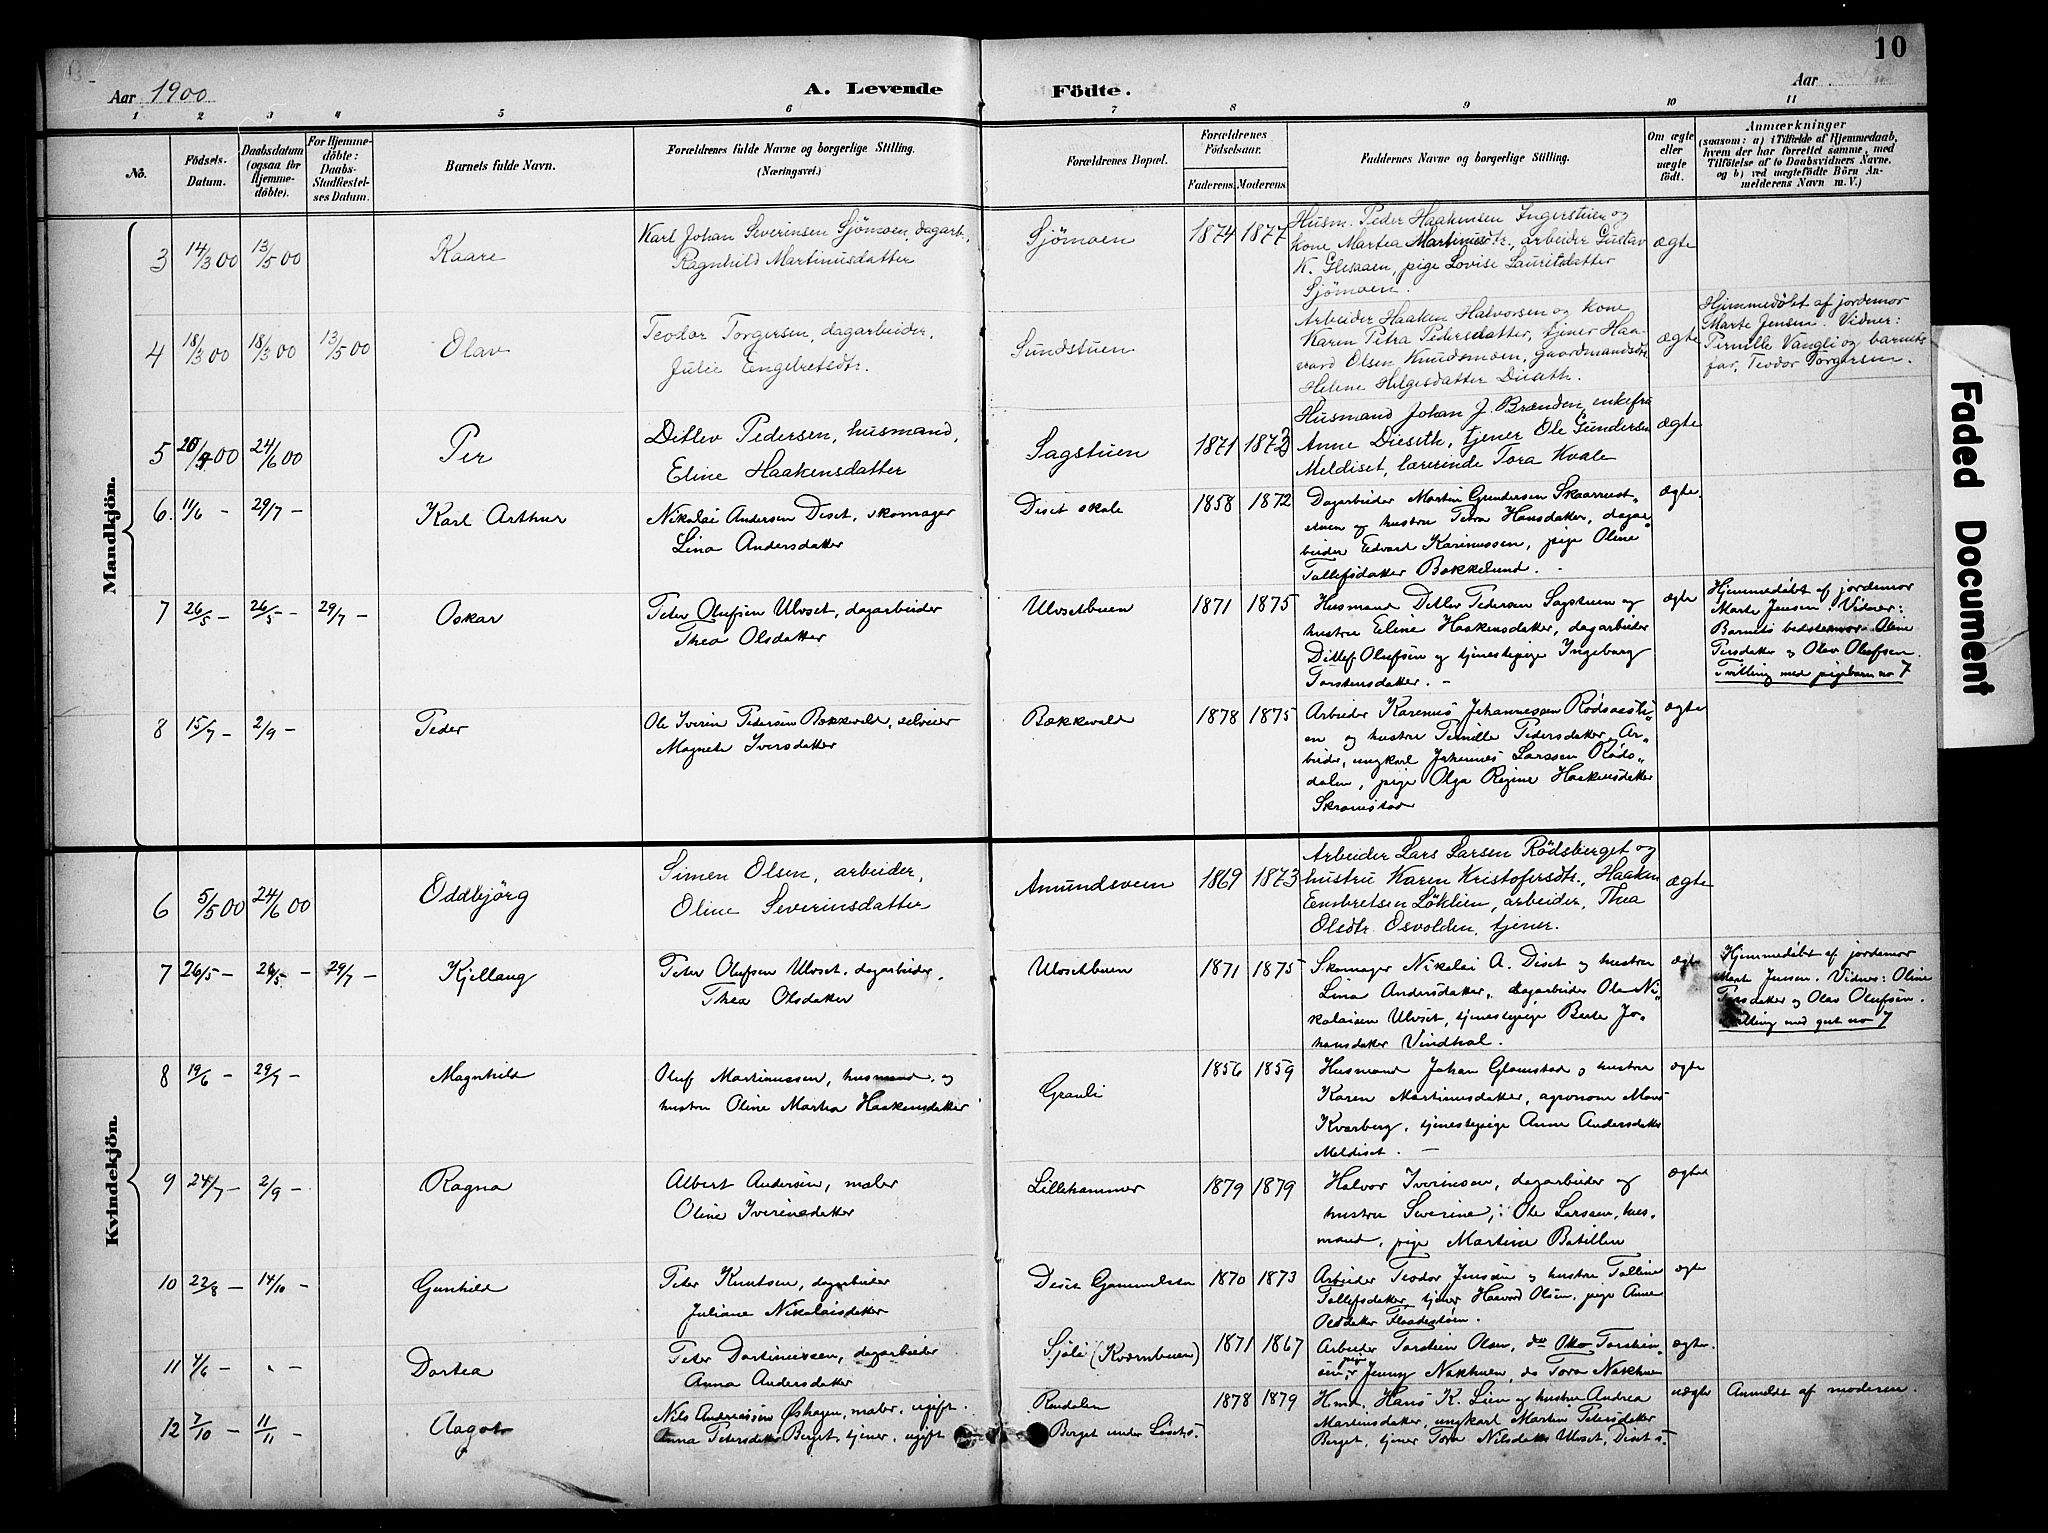 10
Aar 1900 A. Levende Födte. Aar
1 2 3 4 5 6 7 8 9 10 11
No.
Födsels-Datum.
Daabsdatum (ogsaa for Hjemmedöbte).
For Hjemmedöbte: Daabs-Stadfæstelses Datum.
Barnets fulde Navn.
Forældrenes fulde Navne og borgerlige Stilling.
(Næringsvei.)
Forældrenes Bopæl.
Forældrenes Födselsaar.
Faderens. Moderens.
Faddernes Navne og borgerlige Stilling.
Om ægte eller uægte födt.
Anmærkninger
(saasom: a) i Tilfælde af Hjemmedaab, hvem der har forrettet samme, med Tilföielse af to Daabsvidners Navne. og b) ved uægtefödte Börn Anmelderens Navn m. V.)
Mandkjön.
3 14/3 00 13/5 00 Kaare
Karl Johan Severinsen Sjömoen, dagarb.,
Ragnhild Martinusdatter
Sjömoen 1874 1877
Husm. Peder Haakensen Ingerstuen og
kone Martea Martinusdtr., arbeider Gustav
K. Glesaaen, pige Lovise Lauritsdatter
Sjömoen.
ægte
4 18/3 00 18/3 00 13/5 00 Olav
Teodor Torgersen, dagarbeider,
Julie Engebretsdtr.
Sundstuen
Arbeider Haaken Halvorsen og kone
Karen Petra Pedersdatter, tjener Haa-
vard Olsen Knudsmoen, gaardmandsdtr.
Helene Helgesdatter Diseth.
ægte
Hjemmedöbt af jordemor
Marte Jensen. Vidner:
Pernille Vangli og barnets
far, Teodor Torgersen.
5 20/4 00 24/6 00 Per
Ditlev Pedersen, husmand,
Eline Haakensdatter
Sagstuen 1871 1873
Husmand Johan J. Brænden, enkefru
Anne Dieseth, tjener Ole Gundersen
Meldiset, lærerinde Tora Kvale
ægte
6. 11/6 - 29/7 - Karl Arthur
Nikolai Andersen Diset, skomager
Lina Andersdatter
Diset skole 1858 1872
Dagarbeider Martin Gundersen Skaarnest„
stuen og hustru Petra Hansdatter, dagar„
beider Edvard Karinussen, pige Oline
Tollefsdatter Bækkelund.
ægte.
7 26/5 - 26/5 - 29/7 - Oskar
Peter Olufsen Ulvset, dagarbeider
Thea Olsdatter
Ulvsetbuen 1871 1875
Husmand Ditlev Pedersen Sagstuen og
hustru Eline Haakensdatter, dagarbeider
Ditlef Olufsen og tjenestepige Ingeborg
Torstensdatter. -
ægte
Hjemmedöbt af jordemor
Marte Jensen. Vidner:
Barnets bedstemor Oline
Persdatter og Olav Olufsen.
Tvilling med pigebarn no 7
8 15/7 - 2/9 - Peder
Ole Iverin Pedersen Bækkevold, selveier
Magnete Iversdatter
Bækkevold 1878 1875
Arbeider Karenus Johannessen Rödsæstu„
en og hustru Pernille Pedersdatter, Ar„
beider, ungkarl Johannes Larssen Röds„
dalen, pige Olga Regine Haakensdatter
Skramstad
ægte
Kvindekjön.
6 5/5 00 24/6 00 Oddbjörg
Simen Olsen, arbeider,
Oline Severinsdatter
Amundsveen 1869 1873
Arbeider Lars Larsen Rödsberget og
hustru Karen Kristofersdtr., Haaken
Eenbretsen Löklien, arbeider, Thea
Olsdtr. Osvolden, tjener.
ægte
7 26/5 - 26/5 - 29/7 - Kjellaug
Peter Olufsen Ulvset, dagarbeider,
Thea Olsdatter
Ulvsetbuen 1871 1875
Skomager Nikolai A. Diset og hustru
Lina Andersdatter, dagarbeider Ole Ni„
kolaisen Ulvset, tjenestepige Berte Jo„
hansdatter Vindhol.
ægte
Hjemmedöbt af jordemor
Marte Jensen. Vidner: Oline
Persdatter og Olav Olufsen.
Tvilling med gut no 7
8 19/6 - 29/7 - Magnhild
Oluf Martinussen, husmand, og
hustru Oline Martea Haakensdatter
Grauli 1856 1859
Husmand Johan Glomstad og hustru
Karen Martinusdatter, agronom Mons
Kvarberg, tjenestepige Anne Andersdatter
Meldiset. -
ægte
9 24/7 - 2/9 - Ragna
Albert Andersen, maler
Oline Iverinsdatter
Lillehammer 1879 1879
Halvor Iverinsen, dagarbeider og
hustru Severine, Ole Larssen, hus„
mand, pige Martine Botillen
ægte
10 22/8 - 14/10 - Gunhild
Peter Knutsen, dagarbeider
Juliane Nikolaisdatter
Diset Gammelstu 1870 1873
Arbeider Teodor Jensen og hustru Talline
Tollefsdatter, tjener Haavard Olsen, pige Anne
Olsdatter Flaadestöen.
ægte
11 4/6 - „ - Dortea
Peter Dortinussen, dagarbeider
Anna Andersdatter
Sjöli (Kværnbuen) 1871 1867
Arbeider Torstein Olsen, do Otto Torstein„
sen, pige Jenny Nokhuen, do Tora Nokhuen
ægte.
12 7/10 - 11/11 - Aagot
Nils Andreassen Øshagen, maler, ugift.
Anna Petersdatter Berget, tjener, ugift
Rendalen
Berget under Löset s. 1878 1879
Hmd. Hans K. Lien og hustru Andrea
Martinsdatter, ungkarl Martin Petersdatter
Berget, tjener Tora Nilsdatter Ulvset, Diset s.
uægte Anmeldt af moderen.
Faded Document